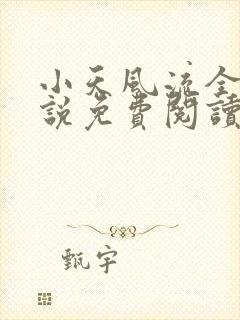 小天風流全
說免費閱讀
甄宇